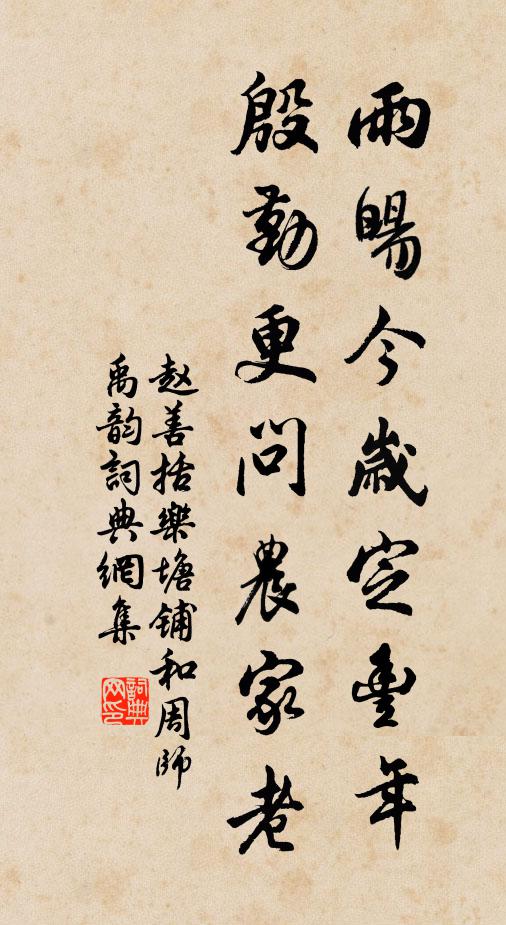 雨暘今歲定豐年
殷勤更問農家老
赵善括樂塘鋪和周師
禹韵詞典網集
詞典网印